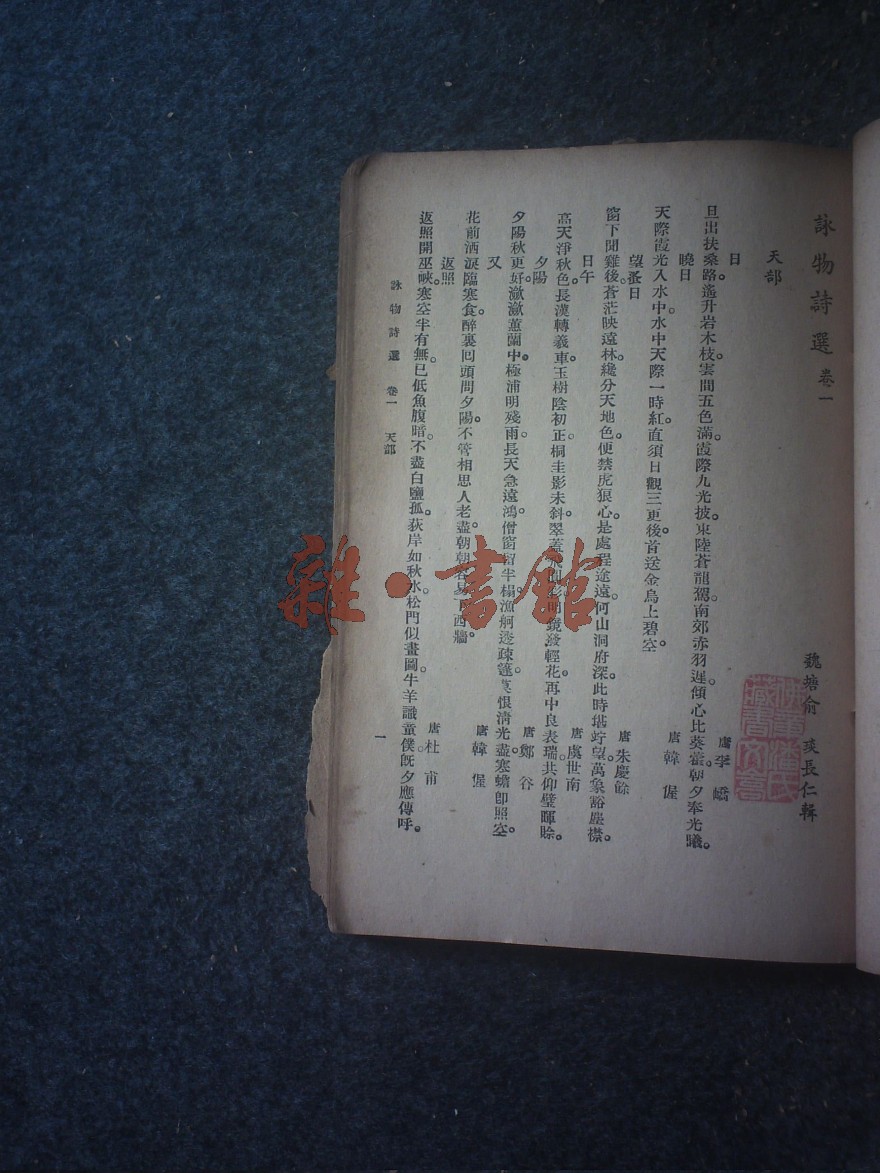 詠物詩選 卷一
魏塘俞 琰長仁輯
天部
日
唐 李嶠
旦出扶桑路。遙升若木枝。雲間五色滿。霞際九光披。東陸蒼龍駕。南郊赤羽遲。傾心比葵藿。朝夕奉光曦。
曉日
唐 韓偓
天際霞光入水中。水中天際一時紅。直須日觀三更後。首送金烏上碧空。
望蚤日
唐 朱慶餘
窗下聞雞後。蒼茫映遠林。纔分天地色。便禁虎狼心。是處程途遠。何山洞府深。此時堪竚望。萬象豁塵襟。
日午
唐 虞世南
高天淨秋色。長漢轉羲車。玉樹陰初正。桐圭影未斜。翠蓋飛圓彩。明鏡發輕花。再中良表瑞。共仰璧暉賒。
夕陽
唐 鄭谷
夕陽秋更好。瀲瀲蕙蘭中。極浦明殘雨。長天急遠鴻。僧窗留半榻。漁舸透疎篷。莫恨清光盡。寒蟾卽照空。
又
唐 韓偓
花前洒淚臨寒食。醉裏回頭問夕陽。不管相思人老盡。朝朝容易下西牆。
返照
唐 杜甫
返照開巫峽。寒空半有無。已低魚腹暗。不盡白鹽孤。荻岸如秋水。松門似畫圖。牛羊識童僕。旣夕應傳呼。
詠物詩選 卷一 天部
一
雜·書館